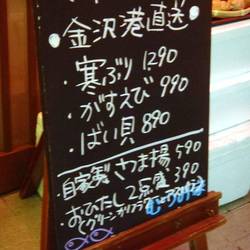 金沢港直送
・寒ぶり 1290
・がすえび 990
・ばい貝 890
自家製さつま揚 590
・おひたし2点盛 390